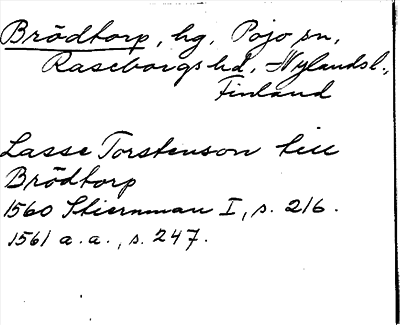 Brödtorp, hg, Pojo sn,
Raseborgs hd, Nylandsl.,
Finland
Lasse Torstenson till
Brödtorp
1560 Stiernman I, s. 216.
1561 a.a., s. 247.